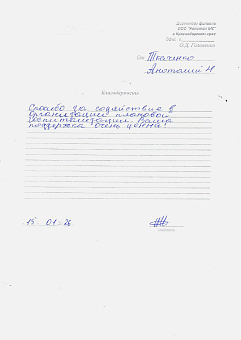 Директору филиала
ООО "Капитал МС"
в Краснодарском крае
От Ткаченко
Анатолий Н
Благодарность
Спасибо за содействие в
организации плановой
госпитализации. Ваша
поддержка очень ценна!
15 01 26